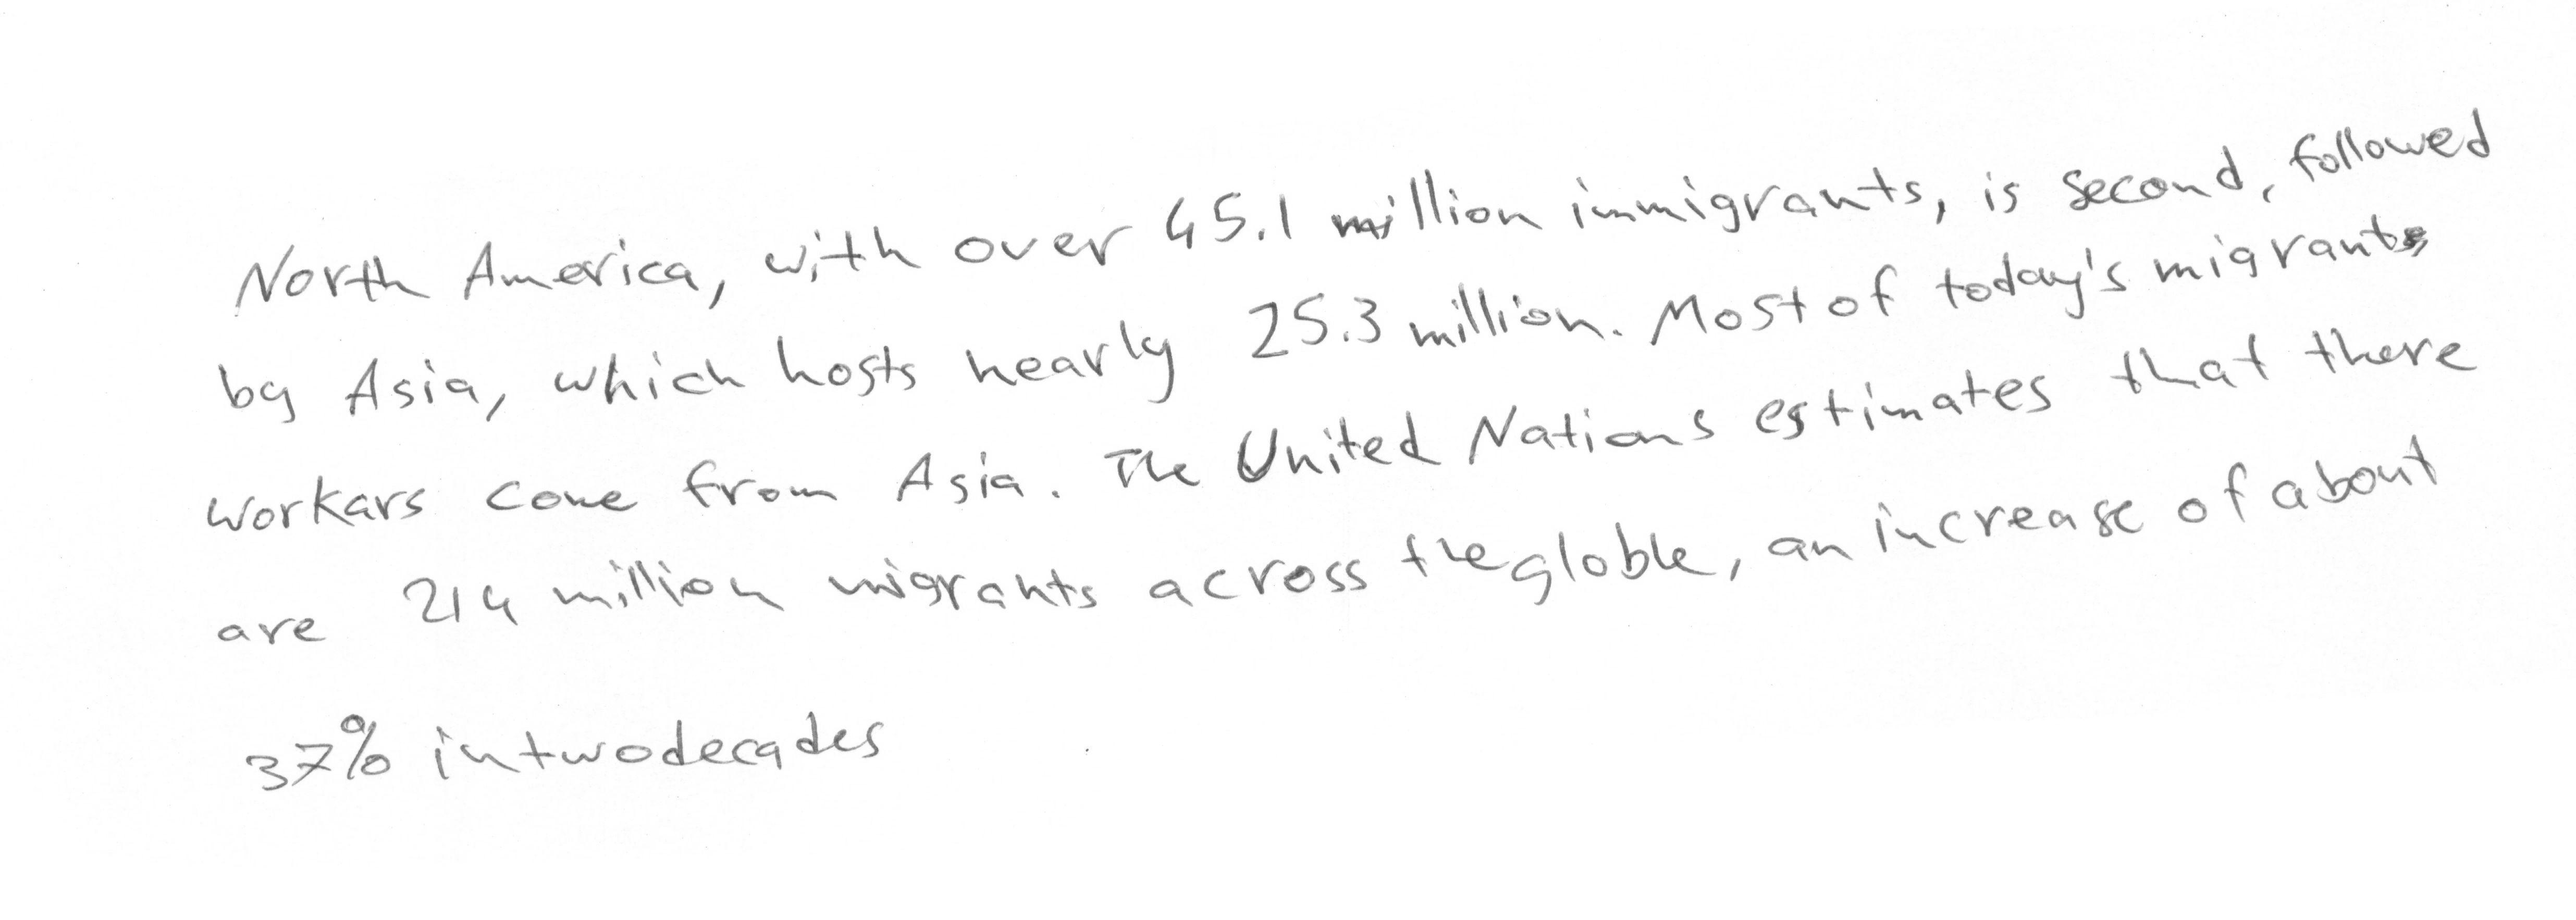 North America, with over 45.1 million immigrants, is second, followed
by Asia, which hosts nearly 25.3 million. Most of today's migrants
workars come from Asia. The United Nations estimates that there
are 214 million migrants across the globle, an increase of about
37% in two decades